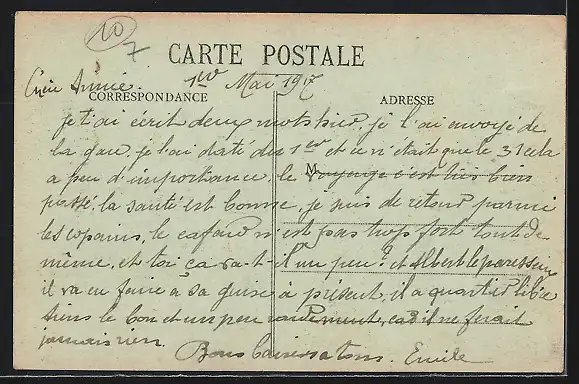 10
7
CARTE POSTALE
1er Mai 1917
CORRESPONDANCE
ADRESSE
M
je t'ai écrit deux mots hier, je l'ai envoyé de
la gare, je l'ai daté du 1er et ce n'était que le 31 cela
a peu d'importance, le voyage c'est très bien
passé, la santé est bonne, je suis de retour parmi
les copains, le cafard n'est pas trop fort tout de
même, et toi ça va-t-il un peu? et Albert le paresseux
il va en faire a sa guise à présent, il a quartier libre
tiens le bon et un peu car il ne ferait
jamais rien.
Bons Baisers a tous. Emile